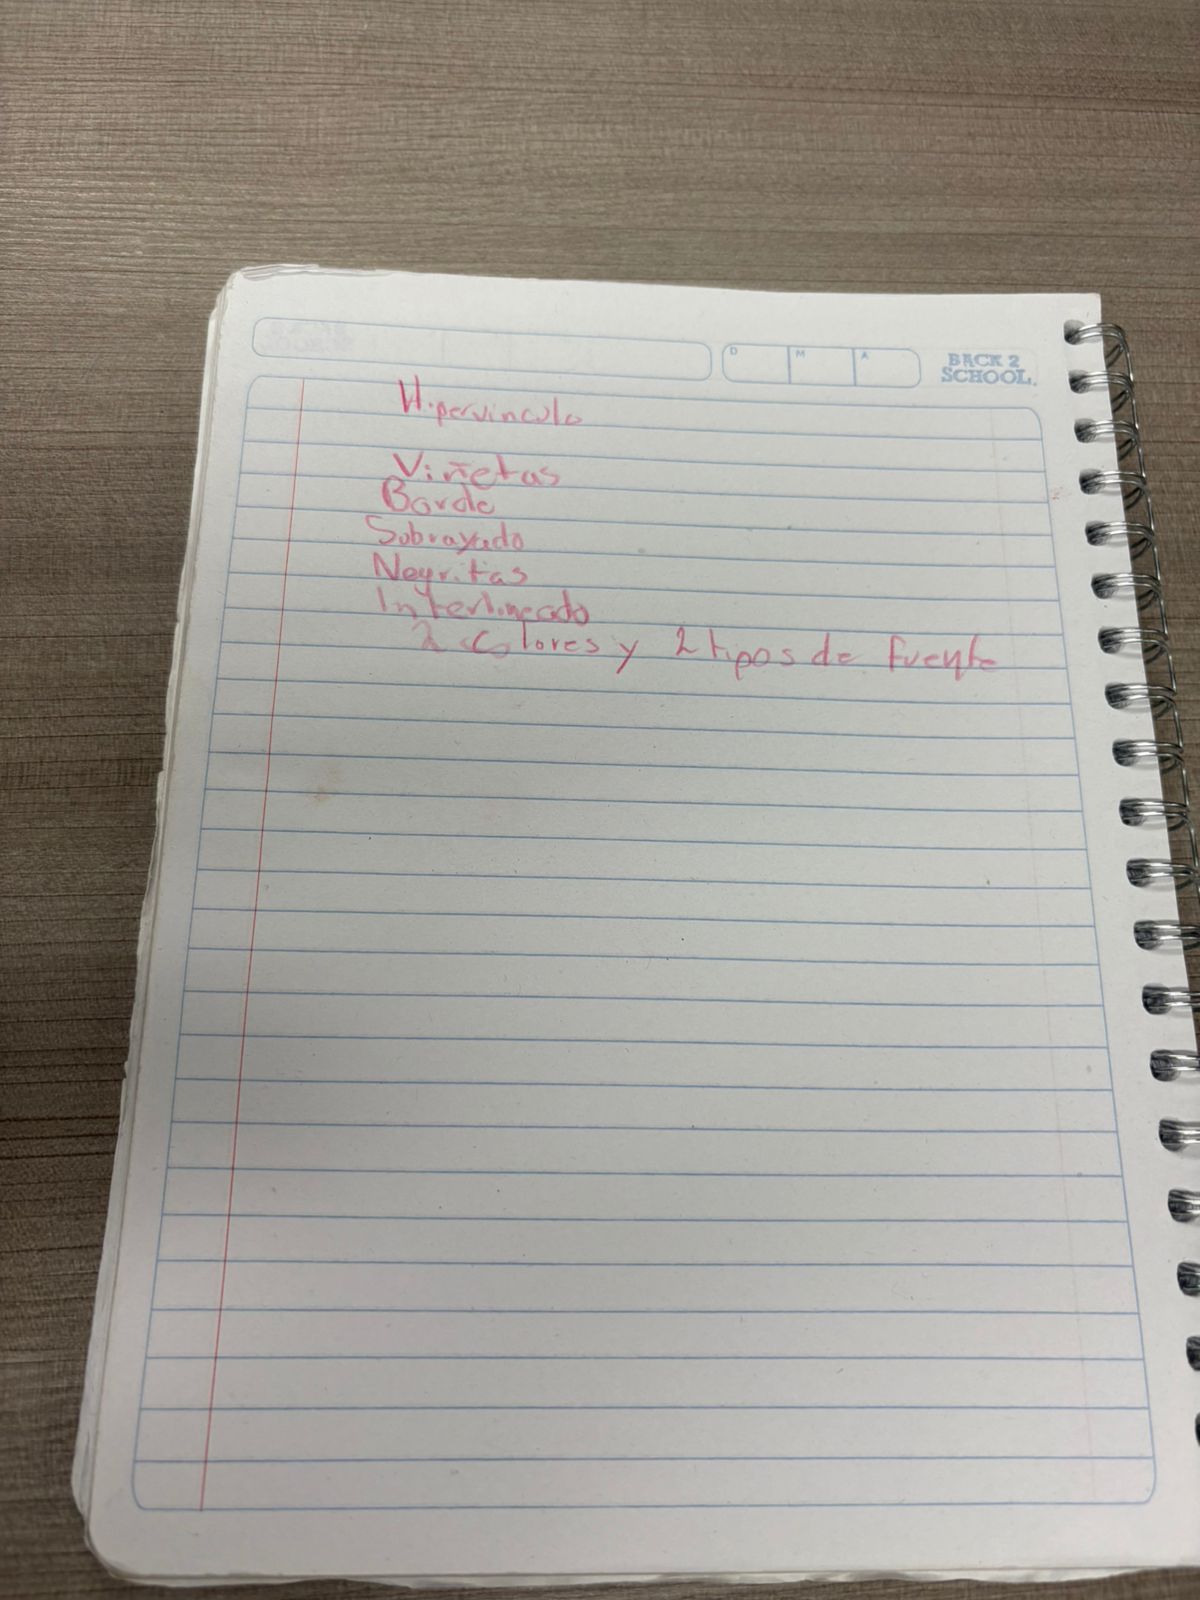 D M A
BACK 2
SCHOOL.
Hipervinculo
Viñetas
Borde
Sobrayado
Negritas
Interlineado
2 colores y 2 tipos de fuente